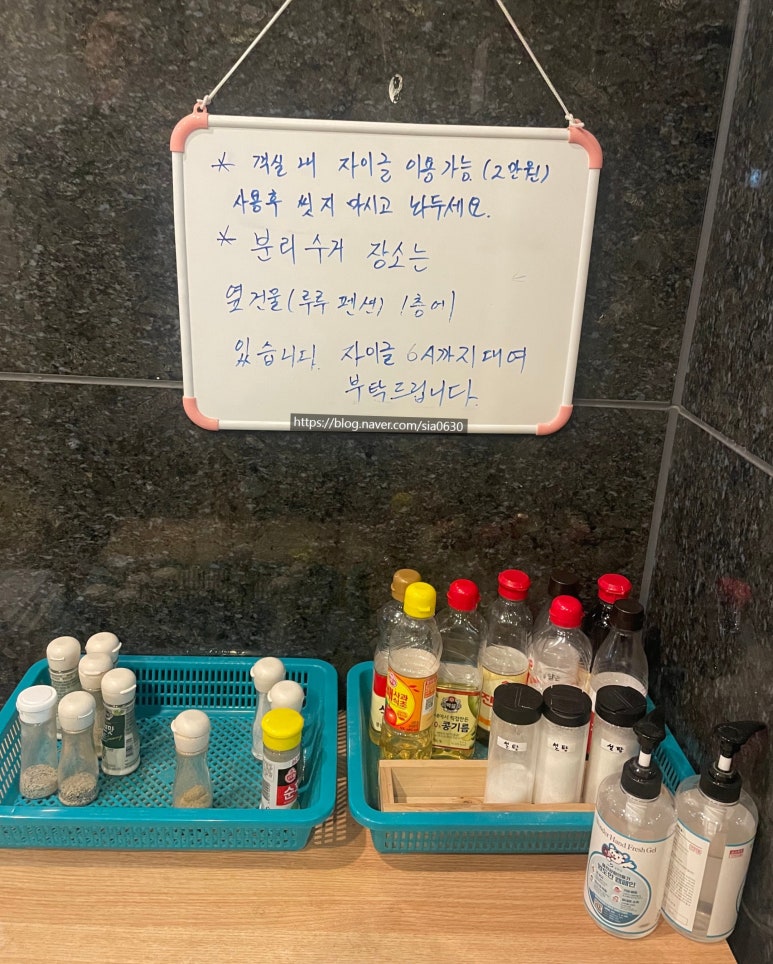 * 객실 내 자이글 이용가능. (2만원)
사용후 씻지 마시고 놔두세요.
* 분리수거 장소는
옆건물(루루펜션) 1층에
있습니다. 자이글 6시까지 대여
부탁드립니다.
https://blog.naver.com/sia0630
사과식초
콩기름
설탕
설탕
설탕
Hand Fresh Gel